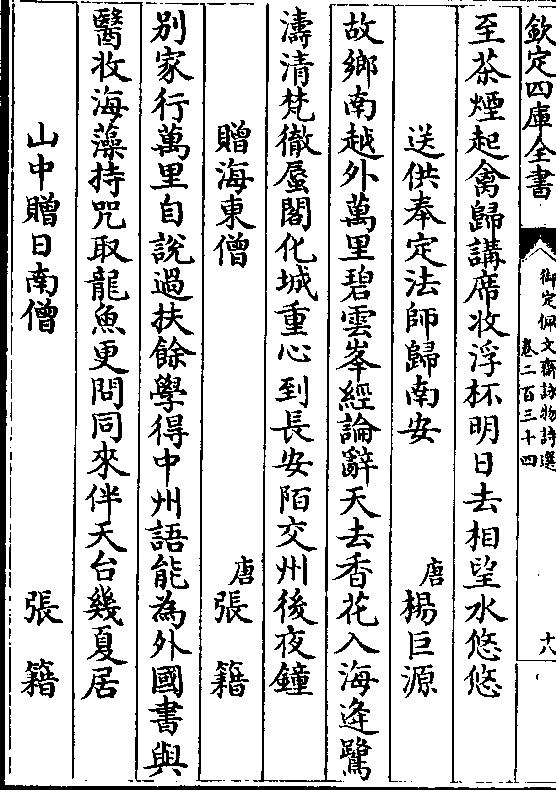 欽定四庫全書
御定佩文齋詠物詩選
卷二百三十四
十八
至茶煙起禽歸講席收浮杯明日去相望水悠悠
送供奉定法師歸南安 唐 楊巨源
故鄉南越外萬里碧雲峯經論辭天去香花入海逢鷺
濤清梵徹蜃閣化城重心到長安陌交州後夜鐘
贈海東僧 唐 張籍
別家行萬里自說過扶餘學得中州語能為外國書與
醫收海藻持咒取龍魚更問同來伴天台幾夏居
山中贈日南僧 張籍